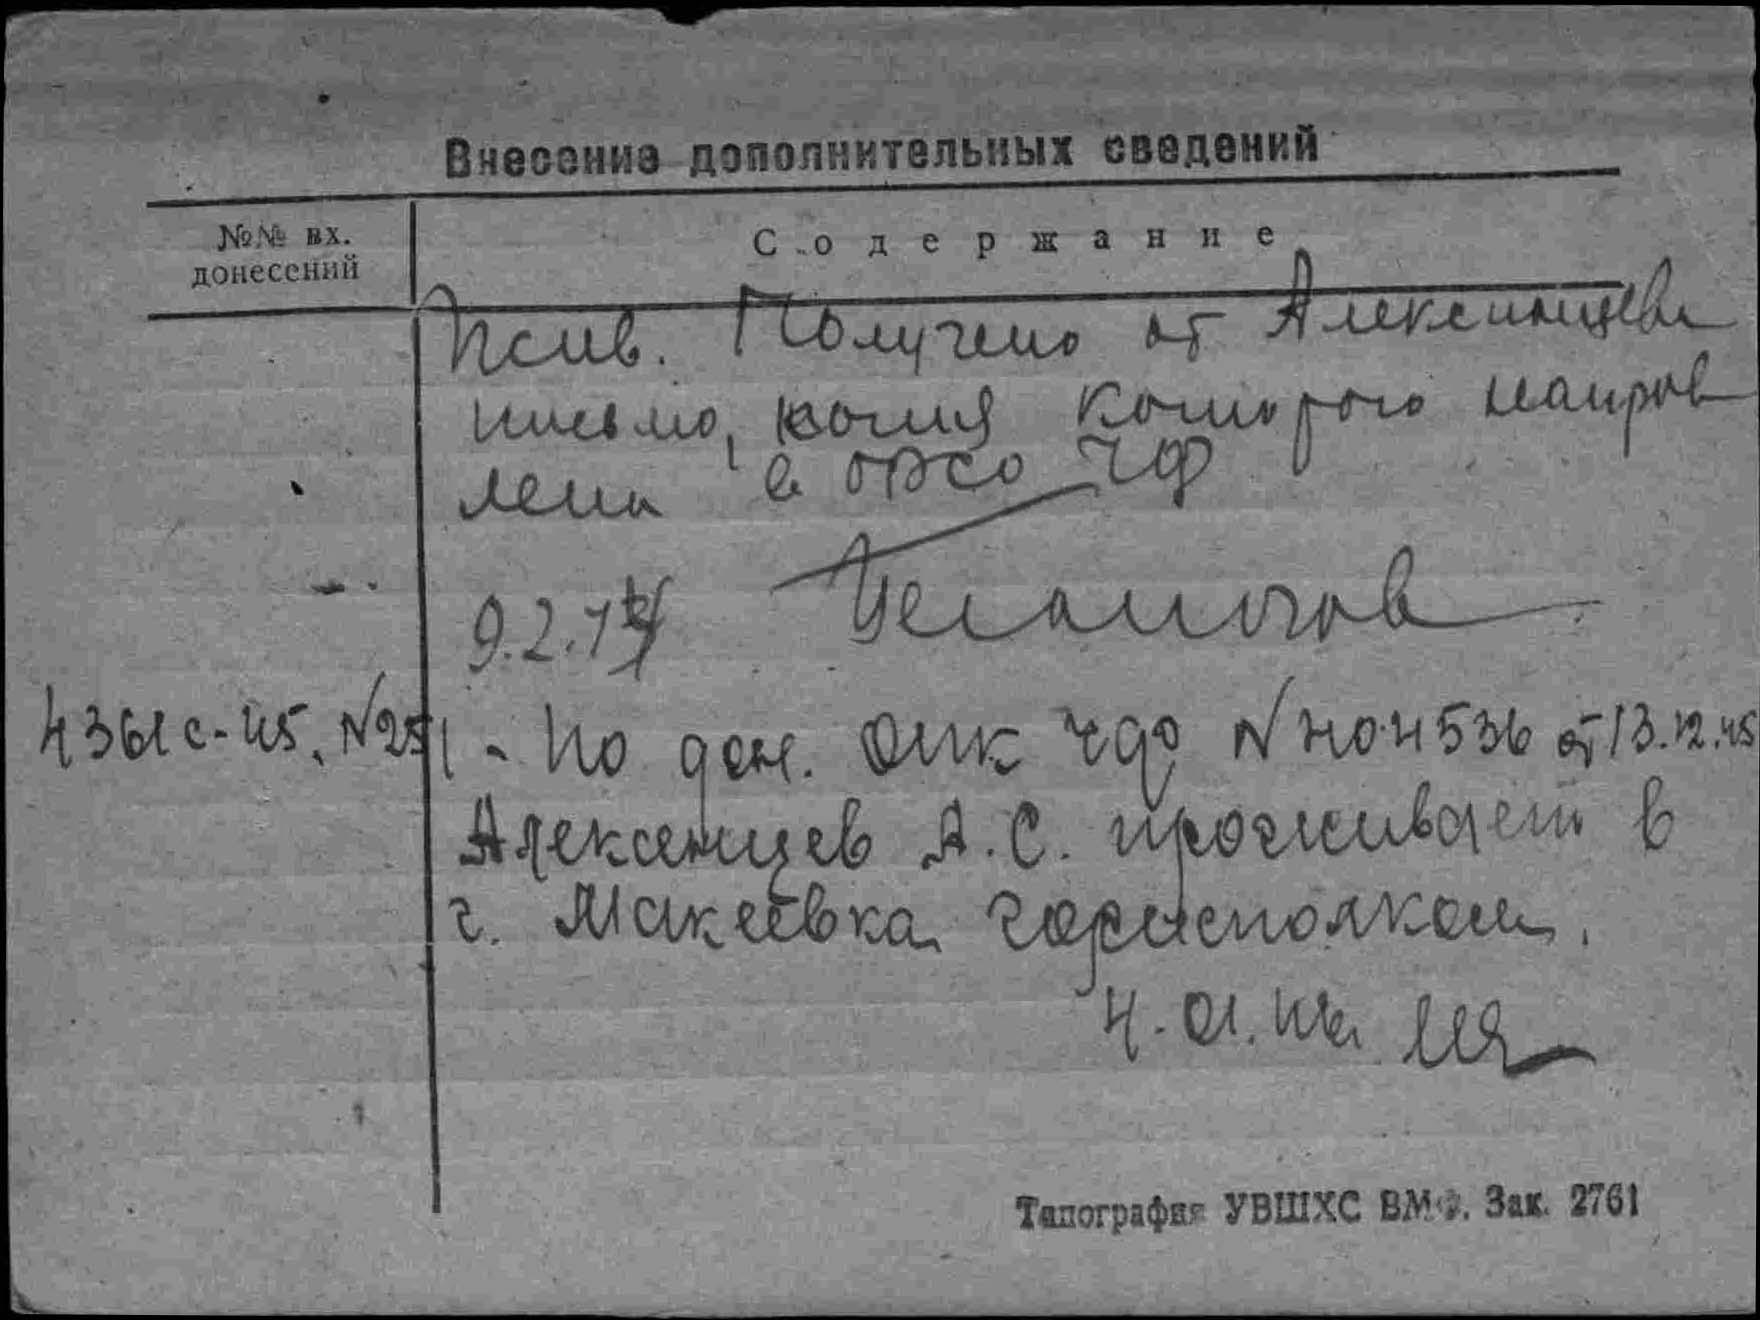 Внесение дополнительных сведений
№№ вх. донесений
Содержание
Получено от Алексинцева
письмо, копия которого направ
лена в ОРСО ЧФ
9.2.
4361с-45, №251 - По дон. ОПК ЧФ № 404536 от 13.12.45
Алексинцев А.С. проживает в
г. Макеевка, горисполком.
4.01.46
Типография УВШХС ВМФ. Зак. 2761